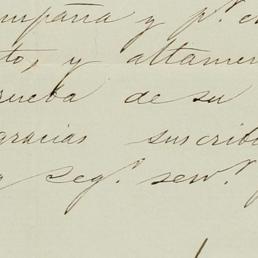 mpaña y p.r e
to, y altamen
rueba de su
gracias suscribi
seg.o serv.r